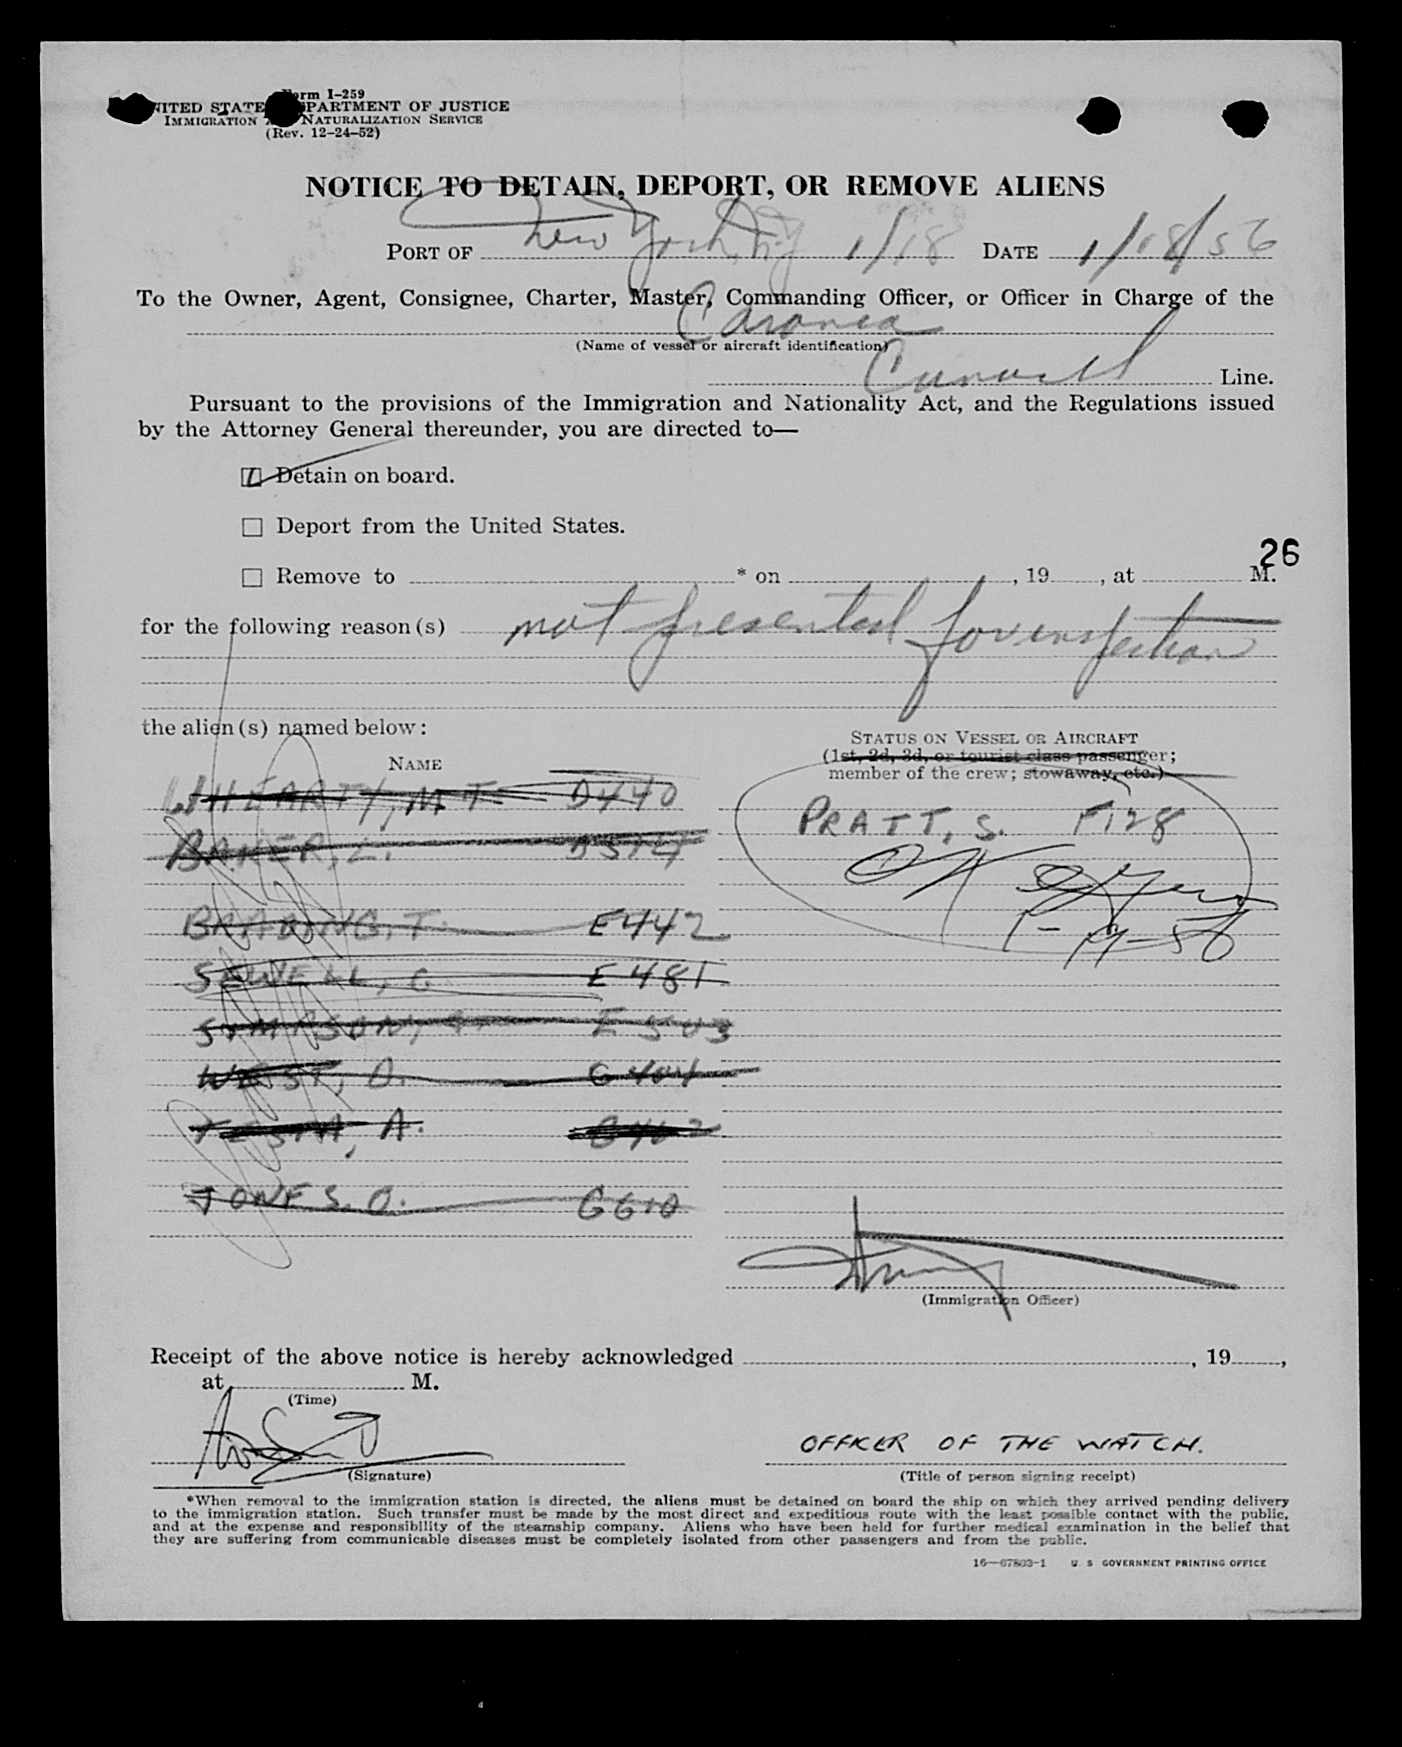 Form I-259
UNITED STATES DEPARTMENT OF JUSTICE
IMMIGRATION AND NATURALIZATION SERVICE
(Rev. 12-24-52)
NOTICE TO DETAIN, DEPORT, OR REMOVE ALIENS
PORT OF New York, N.Y 1/18 DATE 1/18/56
To the Owner, Agent, Consignee, Charter, Master, Commanding Officer, or Officer in Charge of the
Caronia
(Name of vessel or aircraft identification)
Cunard Line.
Pursuant to the provisions of the Immigration and Nationality Act, and the Regulations issued
by the Attorney General thereunder, you are directed to—
Detain on board.
Deport from the United States.
26
Remove to * on , 19 , at M.
for the following reason(s) not presented for inspection
the alien(s) named below:
STATUS ON VESSEL OR AIRCRAFT
(1st, 2d, 3d, or tourist class passenger;
member of the crew; stowaway, etc.)
NAME
HEARTY, M T. D440
PRATT, S. F128
BAKER, L.
OK
BRADING, T. E442
1-19-56
SEWELL, G E 481
SIMPSON, E 503
WEST, O. G 404
TESTA, A. G462
JONES. O. G610
(Immigration Officer)
Receipt of the above notice is hereby acknowledged , 19 ,
at M.
(Time)
OFFICER OF THE WATCH.
(Signature) (Title of person signing receipt)
*When removal to the immigration station is directed, the aliens must be detained on board the ship on which they arrived pending delivery
to the immigration station. Such transfer must be made by the most direct and expeditious route with the least possible contact with the public,
and at the expense and responsibility of the steamship company. Aliens who have been held for further medical examination in the belief that
they are suffering from communicable diseases must be completely isolated from other passengers and from the public.
16—67803-1 U. S. GOVERNMENT PRINTING OFFICE